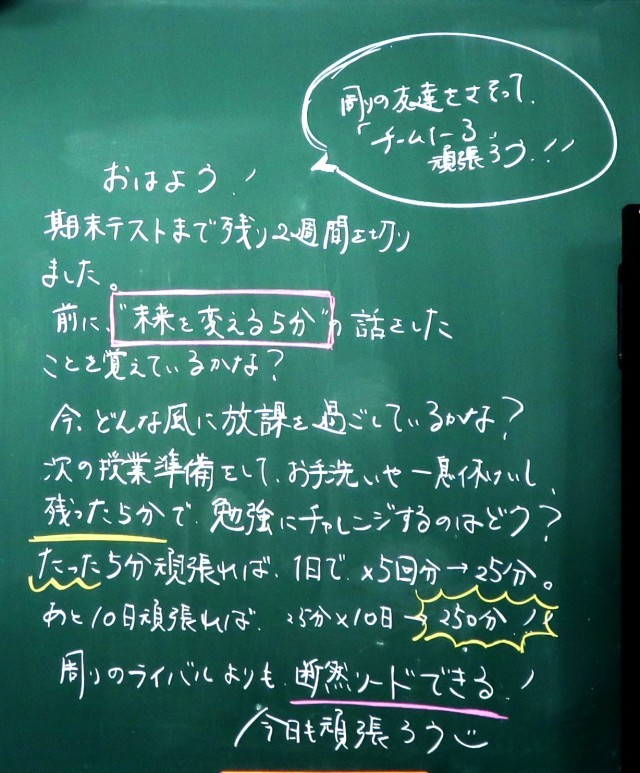 周りの友達をさそって、
「チーム1-3」
頑張ろう!!
おはよう!
期末テストまで残り2週間を切り
ました。
前に、"未来を変える5分"の話をした
ことを覚えているかな?
今、どんな風に放課を過ごしているかな?
次の授業準備をして、お手洗いや一息休けいし、
残った5分で、勉強にチャレンジするのはどう?
たった5分頑張れば、1日で、×5回分→25分。
あと10日頑張れば、25分×10日→250分!!
周りのライバルよりも、断然リードできる!
今日も頑張ろう